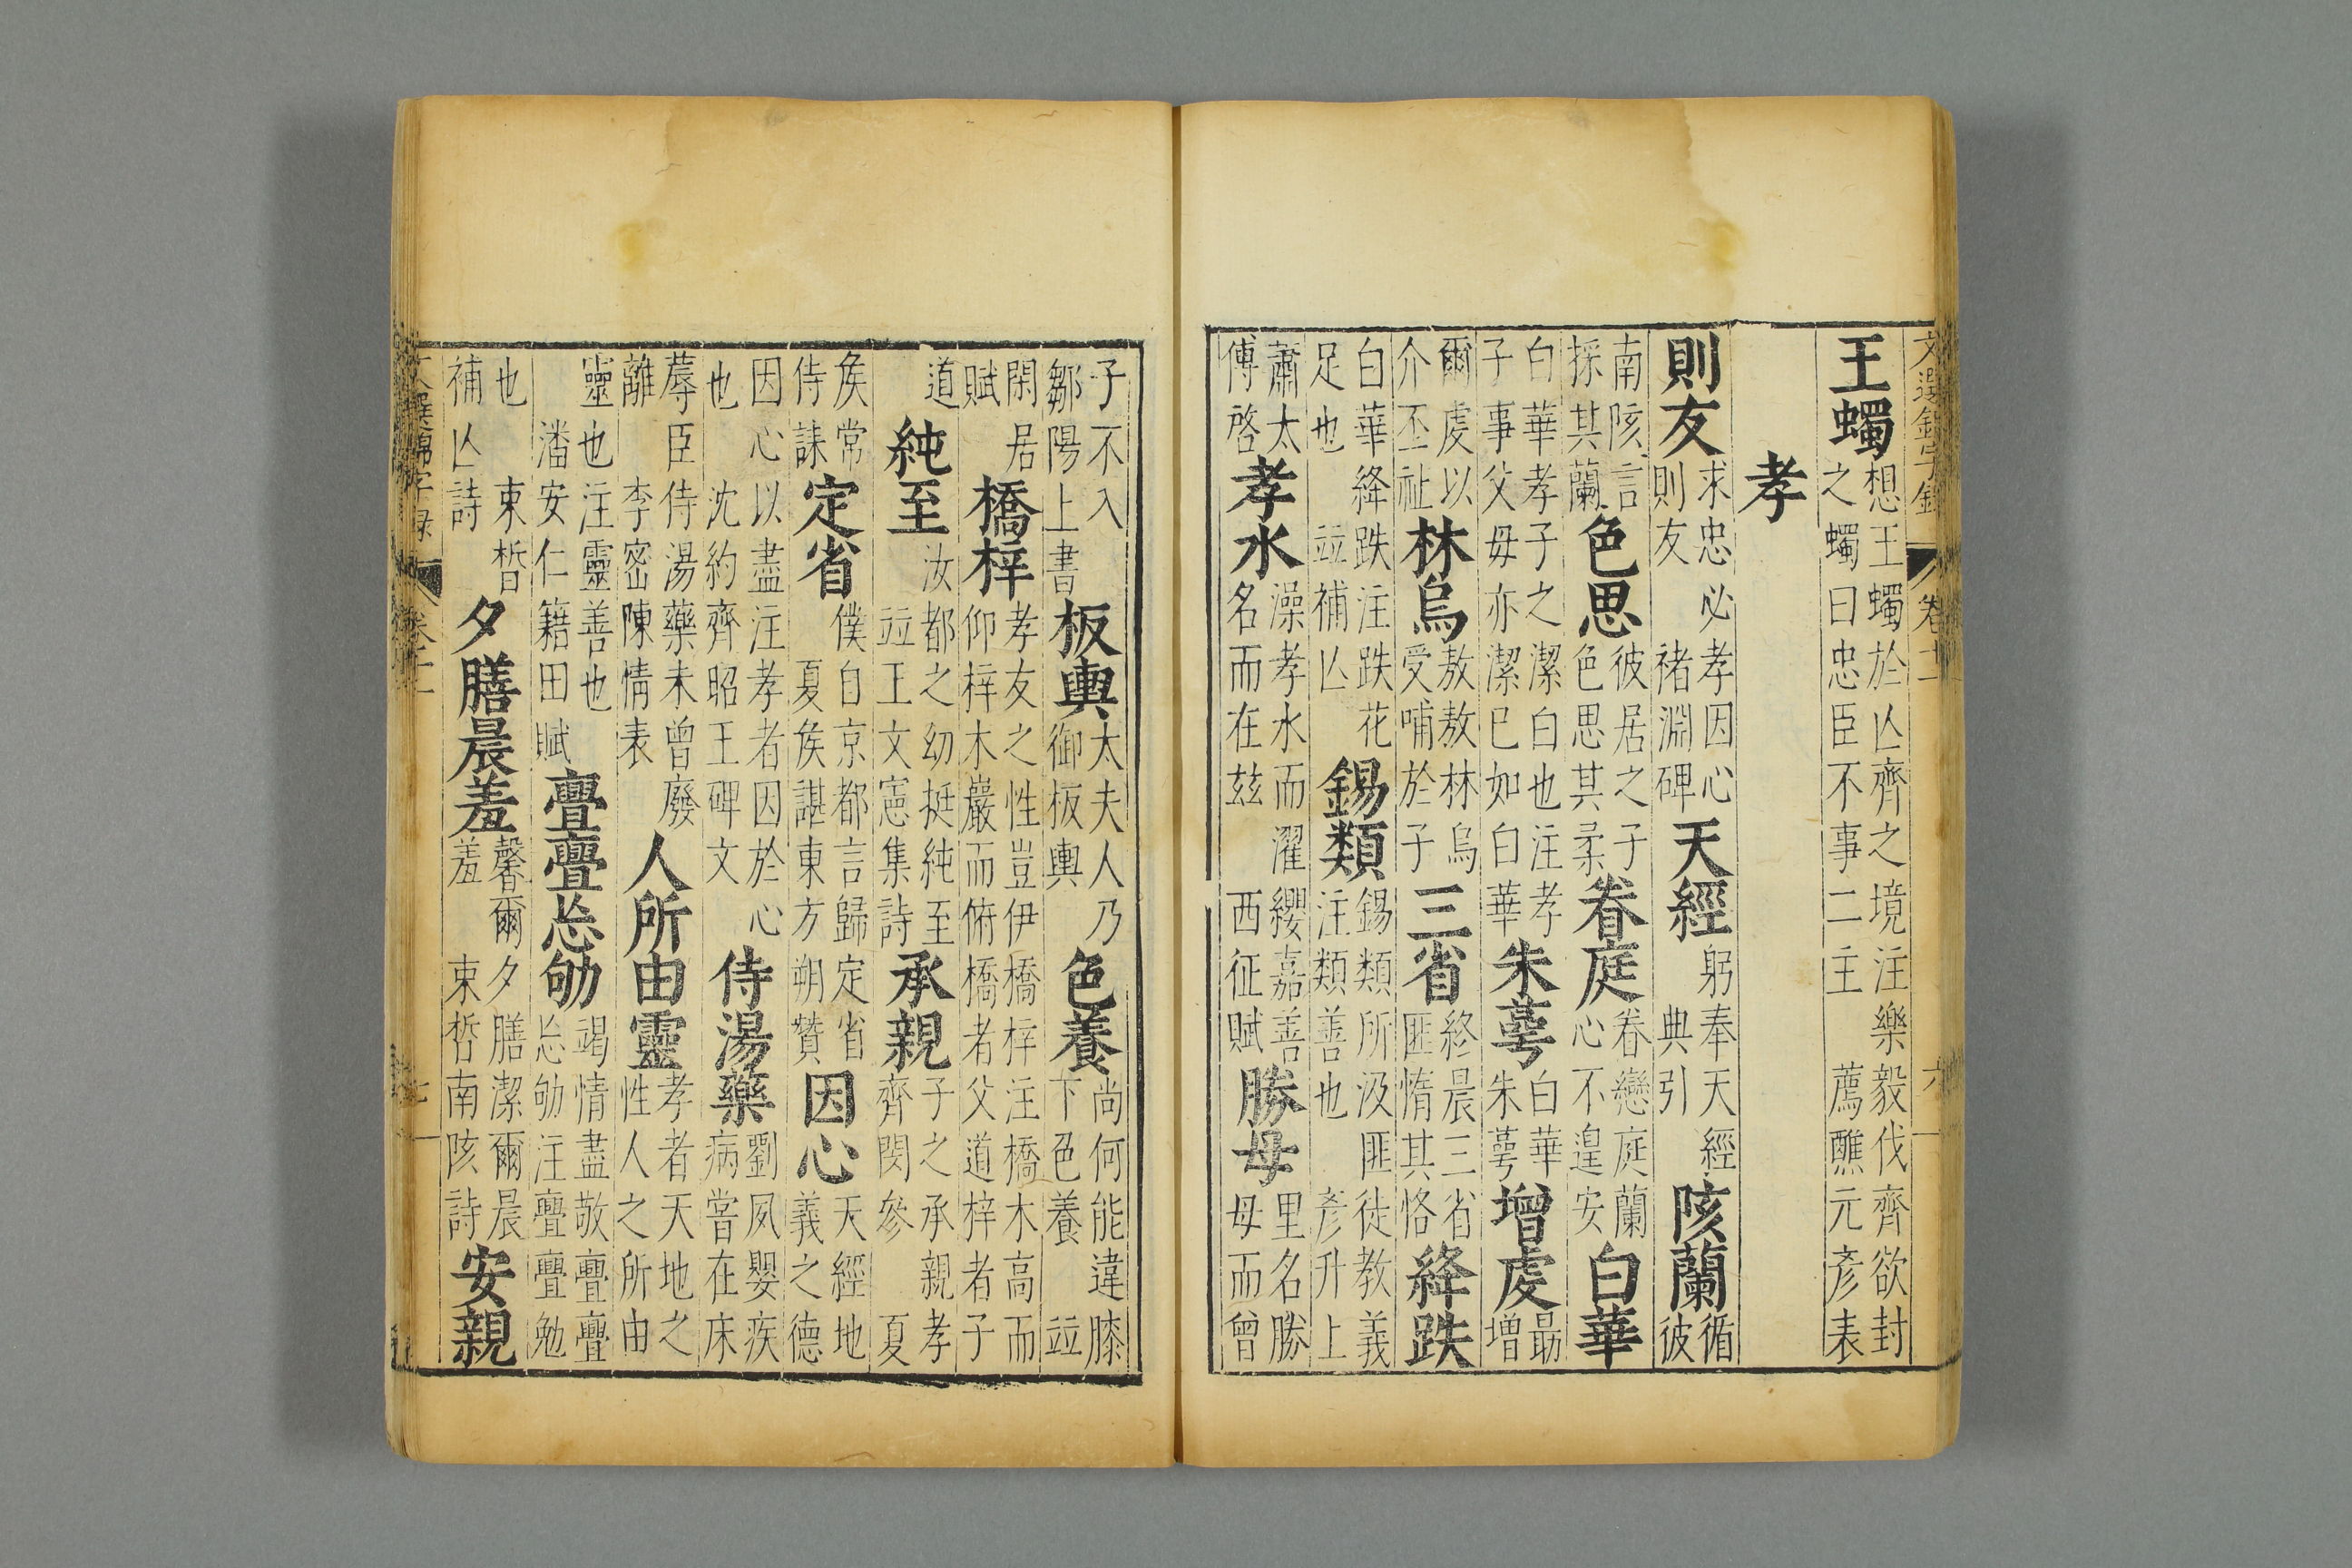 文選錦字錄 卷十一 六
王蠋 想王蠋於亾齊之境注樂毅伐齊欲封之蠋曰忠臣不事二主 薦醮元彥表
孝
則友 求忠必孝因心則友 褚淵碑 天經 躬奉天經 典引 陔蘭 循彼
南陔言採其蘭 色思 彼居之子色思其柔 眷庭 眷戀庭蘭心不遑安 白華
白華孝子之潔白也注孝子事父母亦潔已如白華 朱萼 白華朱萼 增䖍 最增
爾䖍以介丕祉 林烏 敖敖林烏受哺於子 三省 終晨三省匪惰其恪 絳趺
白華絳趺注趺花足也 竝補亾 錫類 錫類所汲匪徒教義注類善也 彥升上
蕭太傅啓 孝水 澡孝水而濯纓嘉善名而在兹 西征賦 勝母 里名勝母而曾
子不入 鄒陽上書 板輿 太夫人乃御板輿 色養 尚何能違膝下色養 竝
閑居賦 橋梓 孝友之性豈伊橋梓注橋木高而仰梓木嚴而俯橋者父道梓者子
道 純至 汝都之幼挺純至 竝王文憲集詩 承親 子之承親孝齊閔參 夏
矦常侍誄 定省 僕自京都言歸定省 夏矦諶東方朔贊 因心 天經地義之德
因心以盡注孝者因於心也 沈約齊昭王碑文 侍湯藥 劉夙嬰疾病嘗在床
蓐臣侍湯藥未曾廢離 李密陳情表 人所由靈 孝者天地之性人之所由
靈也注靈善也 潘安仁籍田賦 亹亹㤀劬 竭情盡敬亹亹㤀劬注亹亹勉
也 束晳補亾詩 夕膳晨羞 馨爾夕膳潔爾晨羞 束晳南陔詩 安親
文選錦字録 卷十一 七